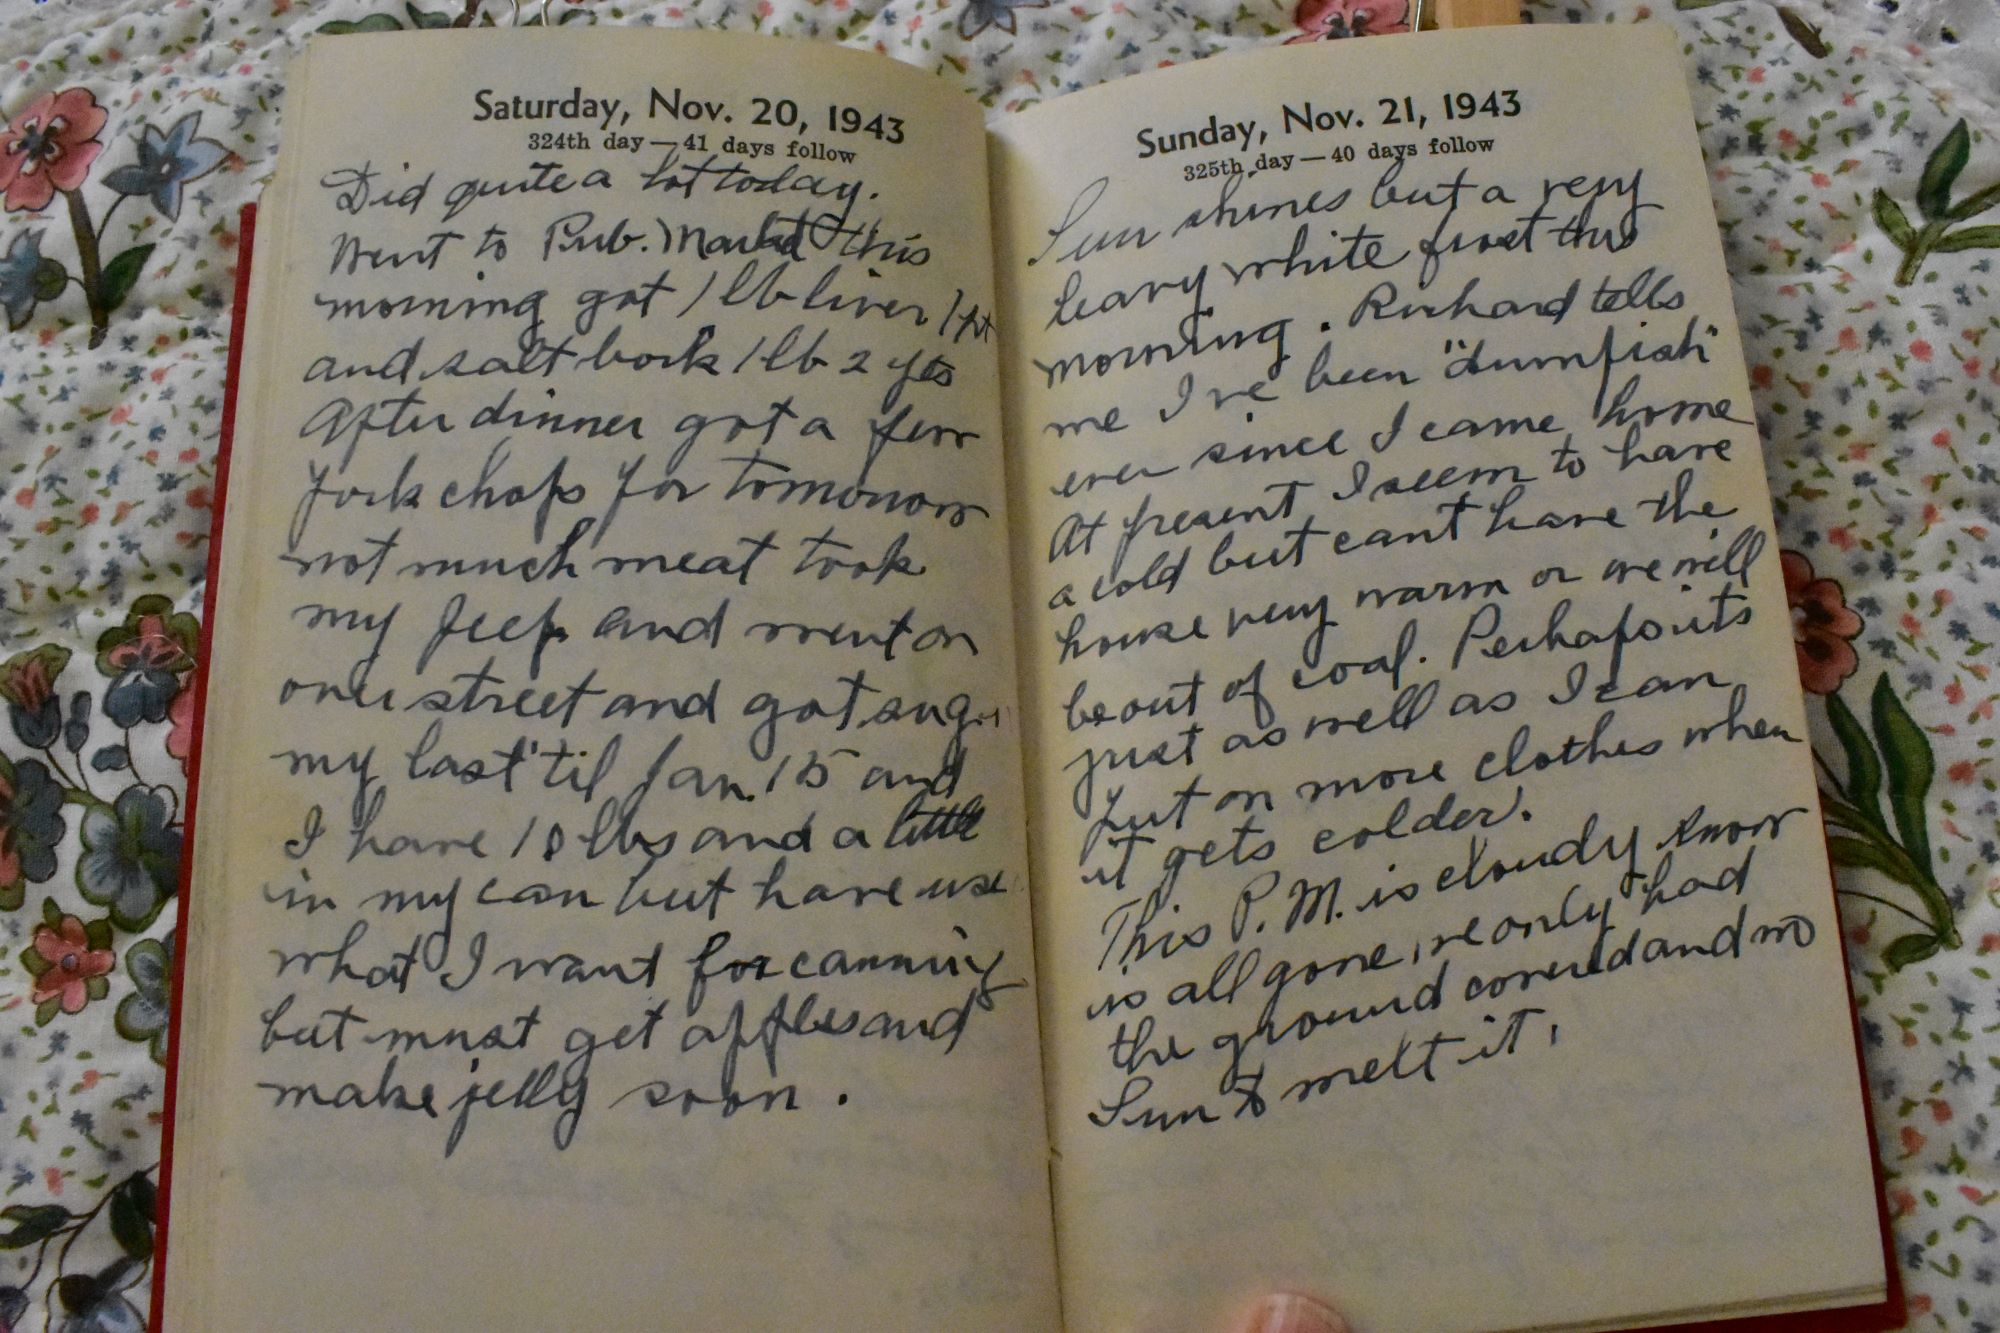 Saturday, Nov. 20, 1943
324th day — 41 days follow
Did quite a lot today.
Went to Pub. Market this
morning got 1 lb liver 1 pt
and salt pork 1 lb 2
After dinner got a few
pork chops for tomorrow
not much meat took
my Jeep and went on
over street and got
my last 'til Jan. 15 and
I have 10 lbs and a little
in my can but have use
what I want for canning
but must get apples and
make jelly soon.
Sunday, Nov. 21, 1943
325th day — 40 days follow
Sun shines but a very
heavy white frost this
morning. Richard tells
me I've been "dumpish"
ever since I came home
At present I seem to have
a cold but cant have the
house very warm or we will
be out of coal. Perhaps its
just as well as I can
put on more clothes when
it gets colder.
This P.M. is cloudy snow
is all gone, we only had
the ground covered and no
Sun to melt it.